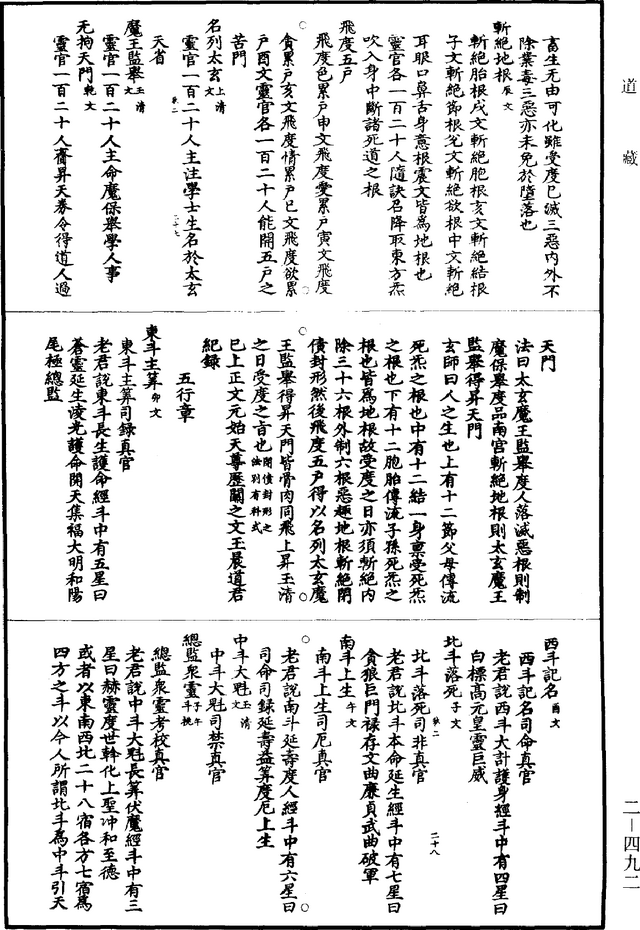 道藏
畜生无由可化雖受度已滅三惡内外不
除業毒三惡亦未免於墮落也
斬絶地根辰文
斬絶胎根戌文斬絶胞根亥文斬絶結根
子文斬絶節根	文斬絶欲根申文斬絶
耳眼口鼻舌身意根震文皆為地根也
靈官各一百二十人隨訣名降取東方炁
吹入身中斷諸死道之根
飛度五戶
飛度色累戶申文飛度愛累戶寅文飛度
貪累戶亥文飛度情累戶巳文飛度欲累
戶酉文靈官各一百二十人能開五戶之
苦門
名列太玄上清文
靈官一百二十人主注學士生名於太玄
二十七
天省
魔王監舉玉清文
靈官一百二十人主命魔保舉學人事
无拘天門乾文
靈官一百二十人賫昇天券令得道人過
天門
法曰太玄魔王監舉度人落滅惡根則制
魔保舉度品南宫斬絶地根則太玄魔王
監舉得昇天門
玄師曰人之生也上有十二節父母傳流
死炁之根也中有十二結一身禀受死炁
之根也下有十二胞胎傳流子孫死炁之
根也皆為地根故受度之日亦須斬絶内
除三十六根外制六根惡趣地根斬絶閉
債封形然後飛度五戶得以名列太玄魔
王監舉得昇天門皆骨肉同飛上昇玉清
之日受度之旨也閉債封形之法别有科式
巳上正文元始天尊歷關之文玉晨道君
紀録
五行章
東斗主筭卯文
東斗主筭司録真官
老君說東斗長生護命經斗中有五星曰
蒼靈延生淩光護命開天集福大明和陽
尾極總監
西斗記名酉文
西斗記名司命真官
老君說西斗大計護身經斗中有四星曰
白標高元皇靈巨威
北斗落死子文
二十八
北斗落死司非真官
老君說北斗本命延生經斗中有七星曰
貪狼巨門禄存文曲廉貞武曲破軍
南斗上生午文
南斗上生司厄真官
老君說南斗延壽度人經斗中有六星曰
司命司録延壽益筭度厄上生
中斗大魁玉清文
中斗大魁司禁真官
總監衆靈子午斗魁
總監衆靈考校真官
老君說中斗大魁長筭伏魔經斗中有三
星曰赫靈度世幹化上聖冲和至德
或者以東南西北二十八宿各方七宿為
四方之斗以今人所謂北斗為中斗引天
二—四九二